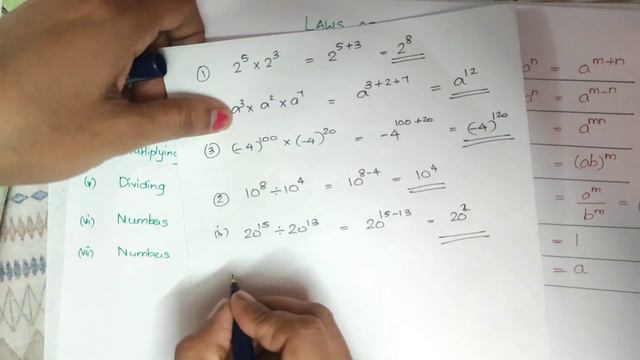 LAWS
① 2⁵ × 2³ = 2⁵⁺³ = 2⁸
a³ × a² × a⁷ = a³⁺²⁺⁷ = a¹²
③ (-4)¹⁰⁰ × (-4)²⁰ = -4¹⁰⁰⁺²⁰ = (-4)¹²⁰
② 10⁸ ÷ 10⁴ = 10⁸⁻⁴ = 10⁴
(ii) 20¹⁵ ÷ 20¹³ = 20¹⁵⁻¹³ = 20²
Multiplying
(v) Dividing
(vi) Numbers
(vii) Numbers
aⁿ = aᵐ⁺ⁿ
aⁿ = aᵐ⁻ⁿ
= aᵐⁿ
= (ab)ᵐ
= aᵐ/bᵐ =
= 1
= a